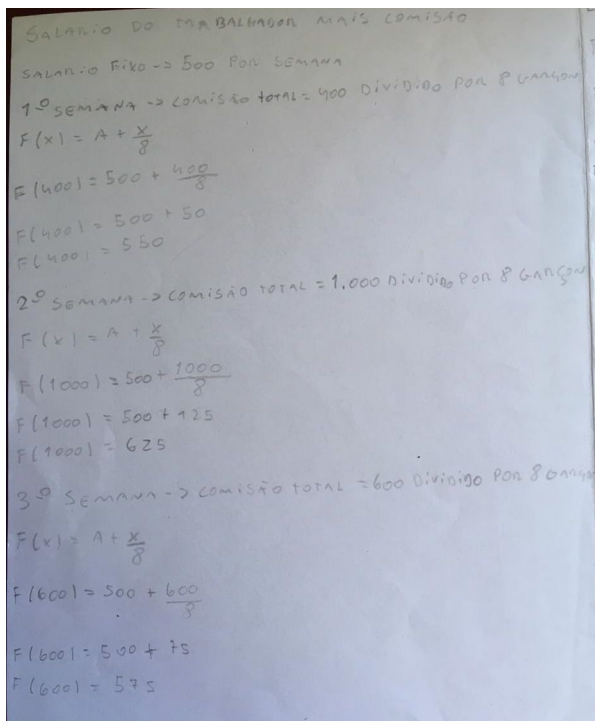 SALARIO DO TRABALHADOR MAIS COMISÃO
SALARIO FIXO -> 500 POR SEMANA
1º SEMANA -> COMISÃO TOTAL = 400 DIVIDIDO POR 8 GARÇON
F(x) = A + x/8
F(400) = 500 + 400/8
F(400) = 500 + 50
F(400) = 550
2º SEMANA -> COMISÃO TOTAL = 1.000 DIVIDIDO POR 8 GARÇON
F(x) = A + x/8
F(1000) = 500 + 1000/8
F(1000) = 500 + 125
F(1000) = 625
3º SEMANA -> COMISÃO TOTAL = 600 DIVIDIDO POR 8 GARÇON
F(x) = A + x/8
F(600) = 500 + 600/8
F(600) = 500 + 75
F(600) = 575